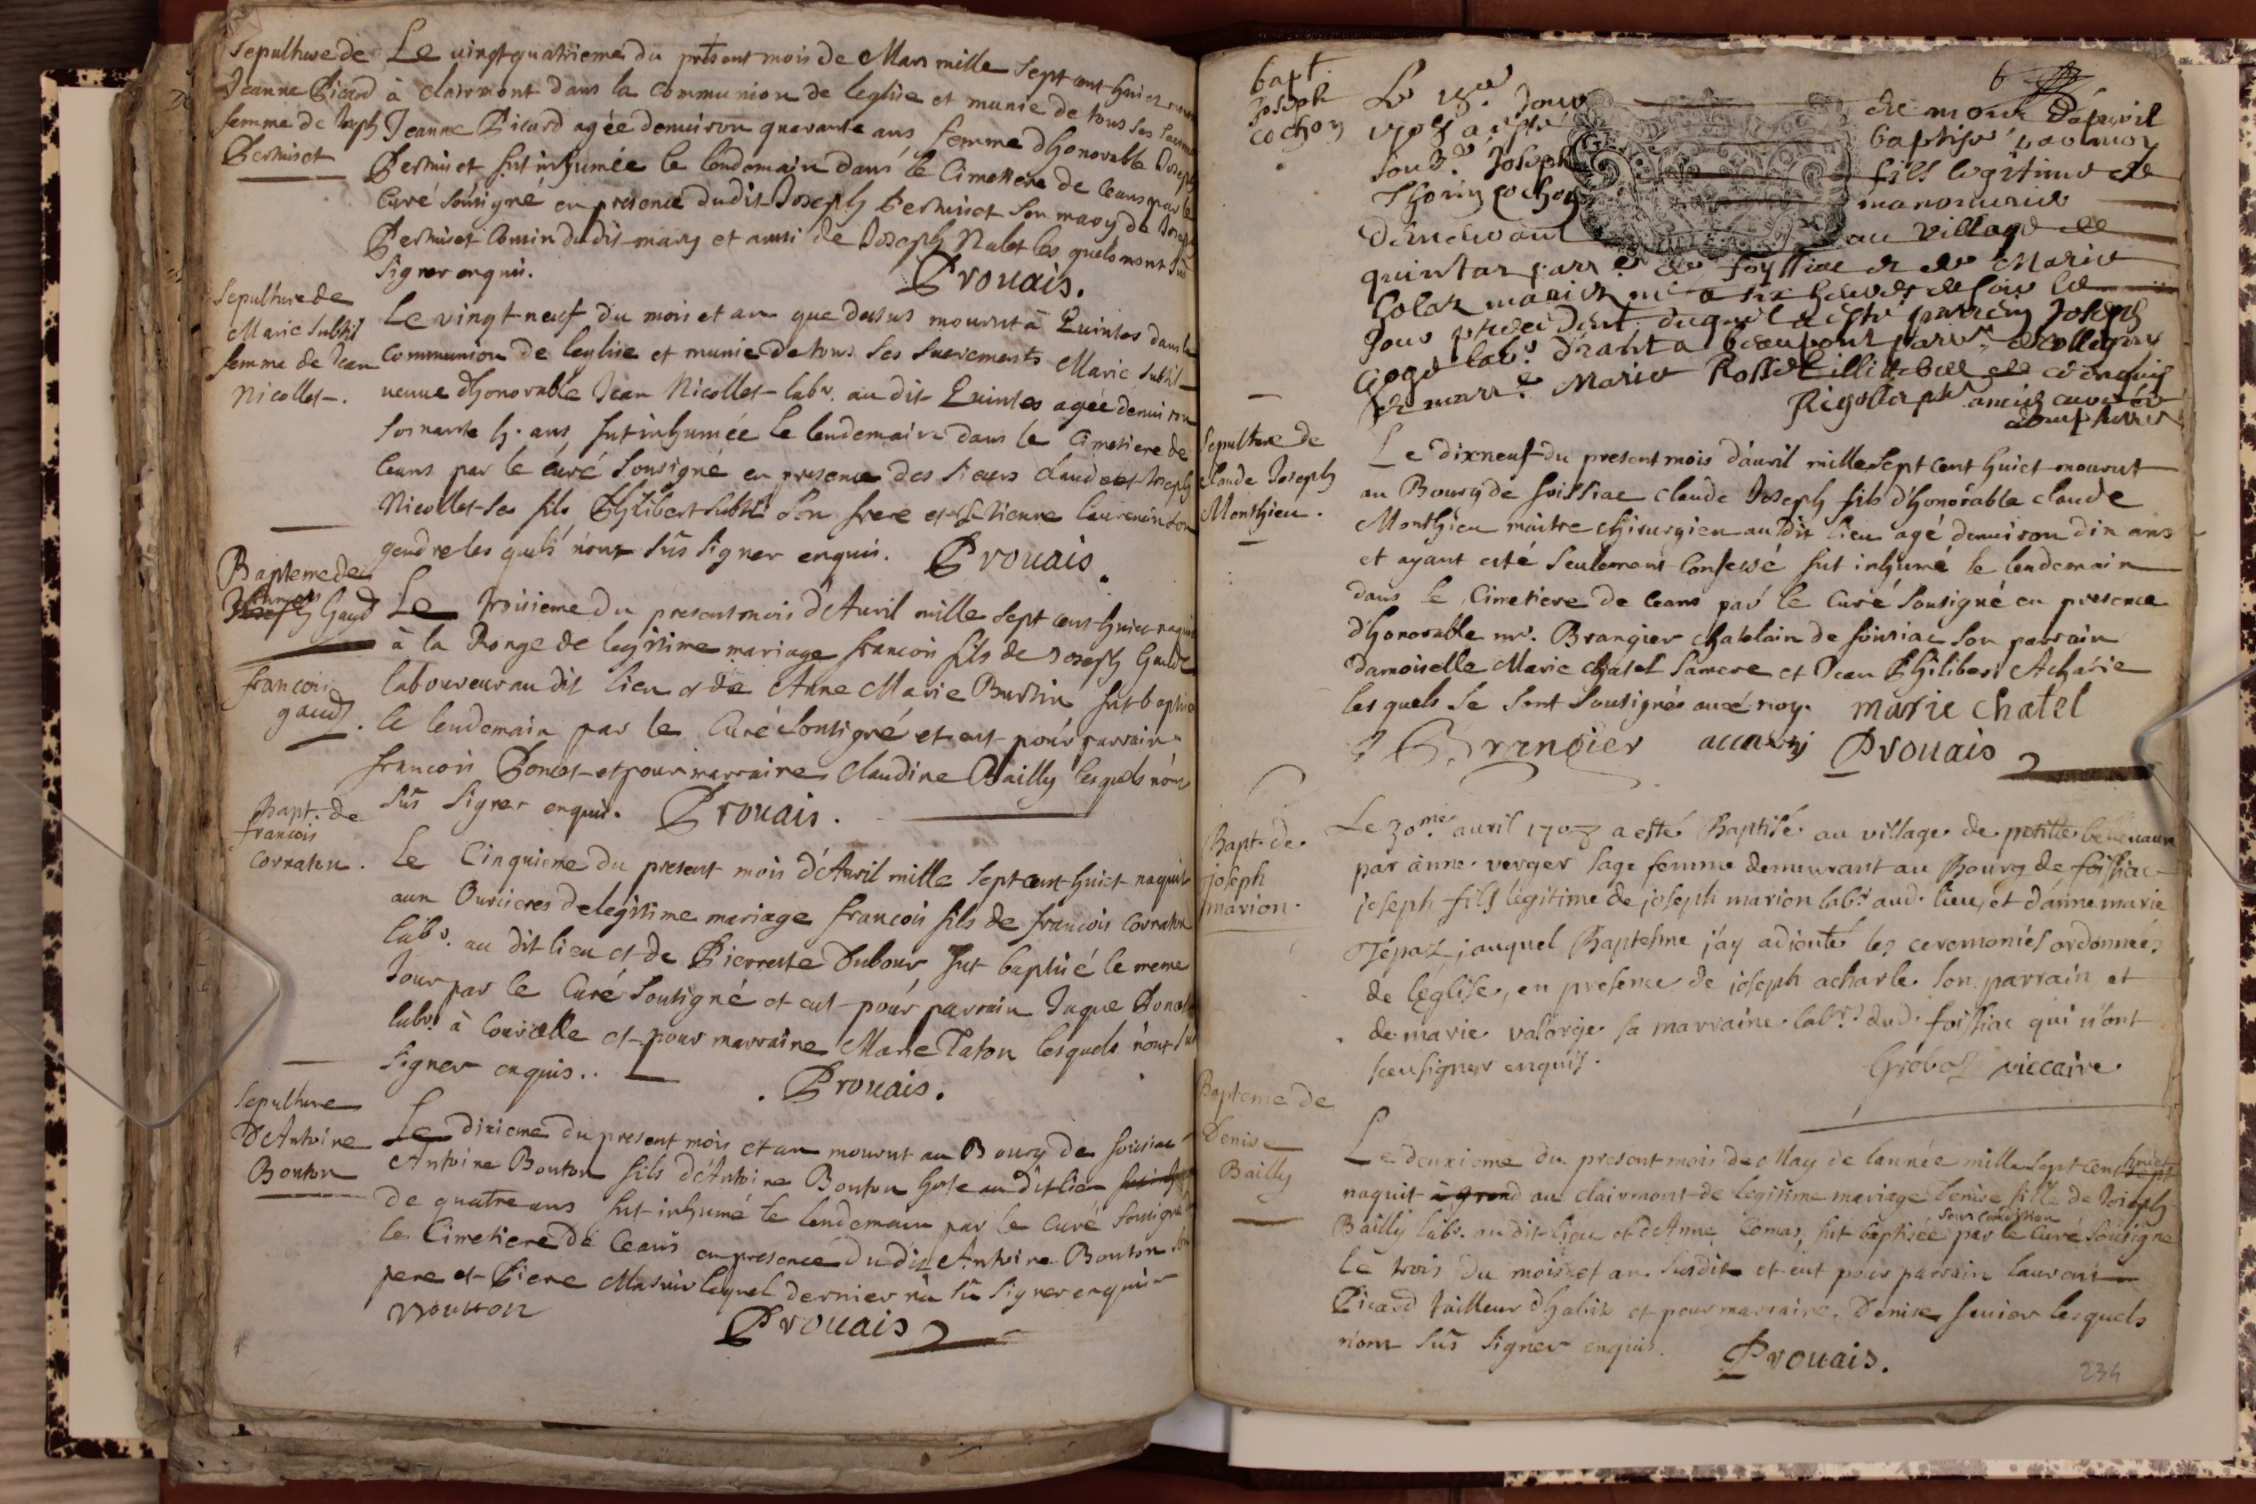 Sepulture de
Jeanne Picard
femme de Josph
Perniset
Le vingtquatrieme du present mois de Mars mille sept cent huict
à clairmont dans la communion de leglise et munie de tous ses
Jeanne Picard agée denuiron quarante ans femme dhonorable Joseph
Perniset fut inhumée le lendemain dans le Cimetiere de ceans par le
Curé sousigné en presence dudit Joseph Perniset son mary de Joseph
Perniset Cousin du dit mary et aussi de Joseph Nalet les quels nont sus
signer enquis.
Prouais.
Sepulture de
Marie Subtil
femme de Jean
Nicollet.
Le vingt neuf du mois et an que dessus mourut à Quintes dans la
communion de leglise et munie de tous ses sacrements Marie Subtil
veuue dhonorable Jean Nicollet labr. au dit Quintes agée denuiron
soixante h. ans fut inhumée le lendemain dans le Cimetiere de
ceans par le curé sousigné en presence des sieurs Claude et Joseph
Nicollet ses fils Philibert Subtil son frere et Estienne Laurencin son
gendre les quels nont sus signer enquis. Prouais.
Bapteme de
francois
Joseph Gaud
francois
gaud.
Le troisieme du present mois d'Auril mille sept cent huict naquit
à la Ronge de legitime mariage francois fils de Joseph Gaud
laboureur au dit lieu et de Anne Marie Burtin fut baptisé
le lendemain par le Curé sousigné et eut pour parrain
francois Poncet et pour marraine Claudine Bailly lesquels nont
sus signer enquis. Prouais.
Bapt. de
francois
Corraton.
Le Cinquieme du present mois d'Auril mille sept cent huict naquit
aux Ouricres de legitime mariage francois fils de francois Corraton
labr. au dit lieu et de Pierrette Dubour fut baptisé le meme
Jour par le Curé sousigné et eut pour parrain Jaque Poncet
labr. à Courcelle et pour marraine Marie Taton lesquels nont sus
signer enquis..
Prouais.
Sepulture
D'Antoine
Bouton
Le dixieme du present mois et an mourut au Bourg de foissiac
Antoine Bouton fils d'Antoine Bouton hoste au dit lieu
de quatre ans fut inhumé le lendemain par le Curé sousigné
le Cimetiere de ceans en presence du dit Antoine Bouton son
pere et Piere Masuir lequel dernier na su signer enquis
Bouton
Prouais
bapt.
Joseph
cochon
Le 18e. Jour du mois d'apuril
1708 a esté baptisé par moy
soubs.é Joseph fils legitime de
Thorin cochon manouurier
demeurant au village de
quintas parr.e de foyssiac et de Marie
Colar mariez né a six heures de soir le
Jour precedent duquel a esté parrein Joseph
Goge lab.r d'anta beaupont parr.e de colligny
et marr.e Marie Rosset illitebee de ce enquis
Rigollet pbr ancien curé de
domphorre
Sepulture de
Claude Joseph
Monthieu.
Le dixneuf du present mois d'auril mille sept cent huict mourut
au Bourg de foissiac Claude Joseph fils d'honorable Claude
Monthieu maitre chirurgien au dit lieu agé denuiron dix ans
et ayant esté seulement confessé fut inhumé le lendemain
dans le Cimetiere de ceans par le Curé sousigné en presence
dhonorable mr. Brangier chatelain de foissiac son parrain
damoiselle Marie Chatel sa mere et Jean Philibert Acharie
les quels se sont sousignés auec moy. marie chatel
Brangier acarij Prouais
Bapt. de
joseph
marion.
Le 30.me auril 1708 a esté Baptisé au village de petitte belleuaure
par anne verger sage femme demeurant au Bourg de foissiac
joseph fils legitime de joseph marion labr. aud. lieu, et d'anne marie
Tépaz, auquel Baptesme j'ay adjouté les ceremonies ordonnées
de l'église, en presence de joseph acharle son parrain et
de marie valorge sa marraine labrs. dud. foissiac qui n'ont
sceu signer enquis.
Grobos viccaire.
Bapteme de
Denise
Bailly
Le deuxieme du present mois de May de lannée mille sept cent huict
naquit à grand au clairmont de legitime mariage Denise fille de Joseph
Bailly labr. au dit lieu et d'Anne Comas, fut baptisée sous condition par le curé sousigné
le trois du mois et an susdit et eut pour parrain laurent
Picard tailleur d'habits et pour marraine Denise seuior lesquels
nont sus signer enquis.
Prouais.
234